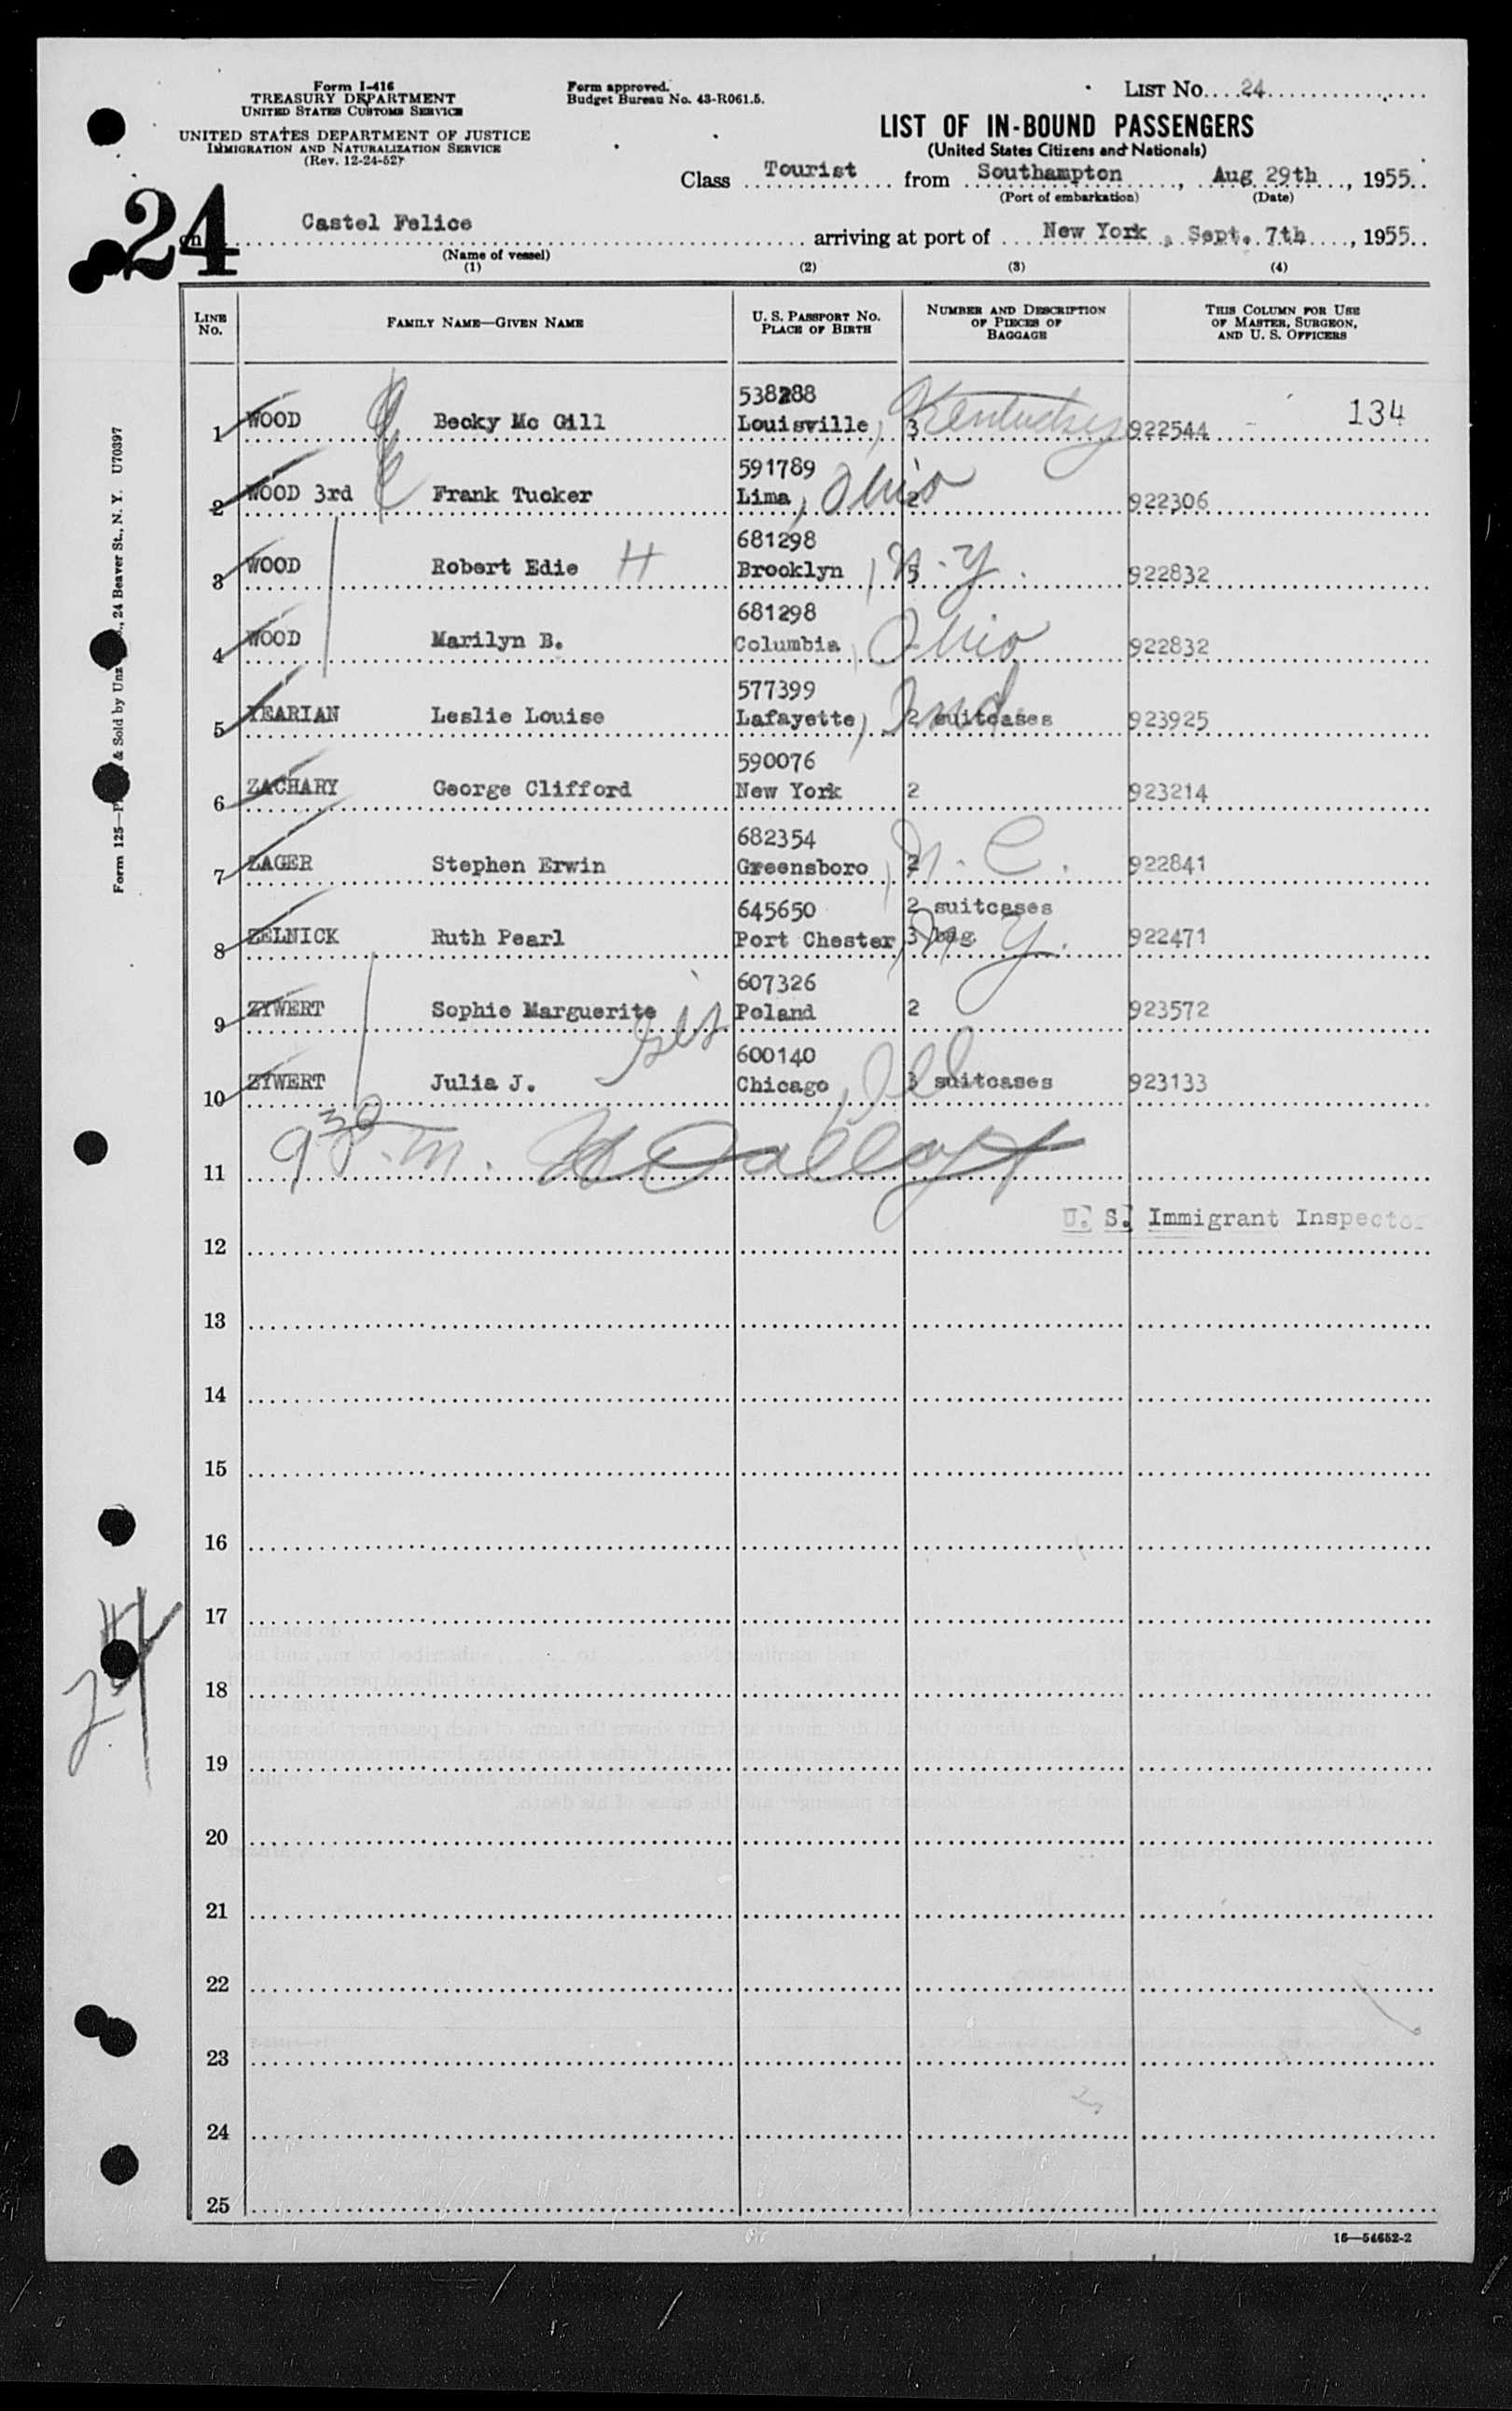 Form I-416
TREASURY DEPARTMENT
UNITED STATES CUSTOMS SERVICE
UNITED STATES DEPARTMENT OF JUSTICE
IMMIGRATION AND NATURALIZATION SERVICE
(Rev. 12-24-52)
Form approved.
Budget Bureau No. 43-R061.5.
LIST No. 24
LIST OF IN-BOUND PASSENGERS
(United States Citizens and Nationals)
Class Tourist from Southampton, Aug 29th, 1955
(Port of embarkation) (Date)
24
on Castel Felice arriving at port of New York, Sept. 7th, 1955
(Name of vessel)
(1) (2) (3) (4)
LINE No. FAMILY NAME—GIVEN NAME U. S. PASSPORT No. PLACE OF BIRTH NUMBER AND DESCRIPTION OF PIECES OF BAGGAGE THIS COLUMN FOR USE OF MASTER, SURGEON, AND U. S. OFFICERS
538288
1 WOOD Becky Mc Gill Louisville, Kentucky 3 922544 134
591789
2 WOOD 3rd Frank Tucker Lima, Ohio 2 922306
681298
3 WOOD Robert Edie H Brooklyn, N.Y. 5 922832
681298
4 WOOD Marilyn B. Columbia, Ohio 922832
577399
5 YEARIAN Leslie Louise Lafayette, Ind 2 suitcases 923925
590076
6 ZACHARY George Clifford New York 2 923214
682354
7 ZAGER Stephen Erwin Greensboro, N.C. 2 922841
645650 2 suitcases
8 ZELNICK Ruth Pearl Port Chester, N.Y. 3 bag 922471
607326
9 ZYWERT Sophie Marguerite Poland 2 923572
sis
600140
10 ZYWERT Julia J. Chicago, Ill 3 suitcases 923133
11 9 30 P.M.
U. S. Immigrant Inspector
12
13
14
15
16
17
18
19
20
21
22
23
24
25
16—54652-2
Form 125—P & Sold by Unz , 24 Beaver St., N. Y. U70397